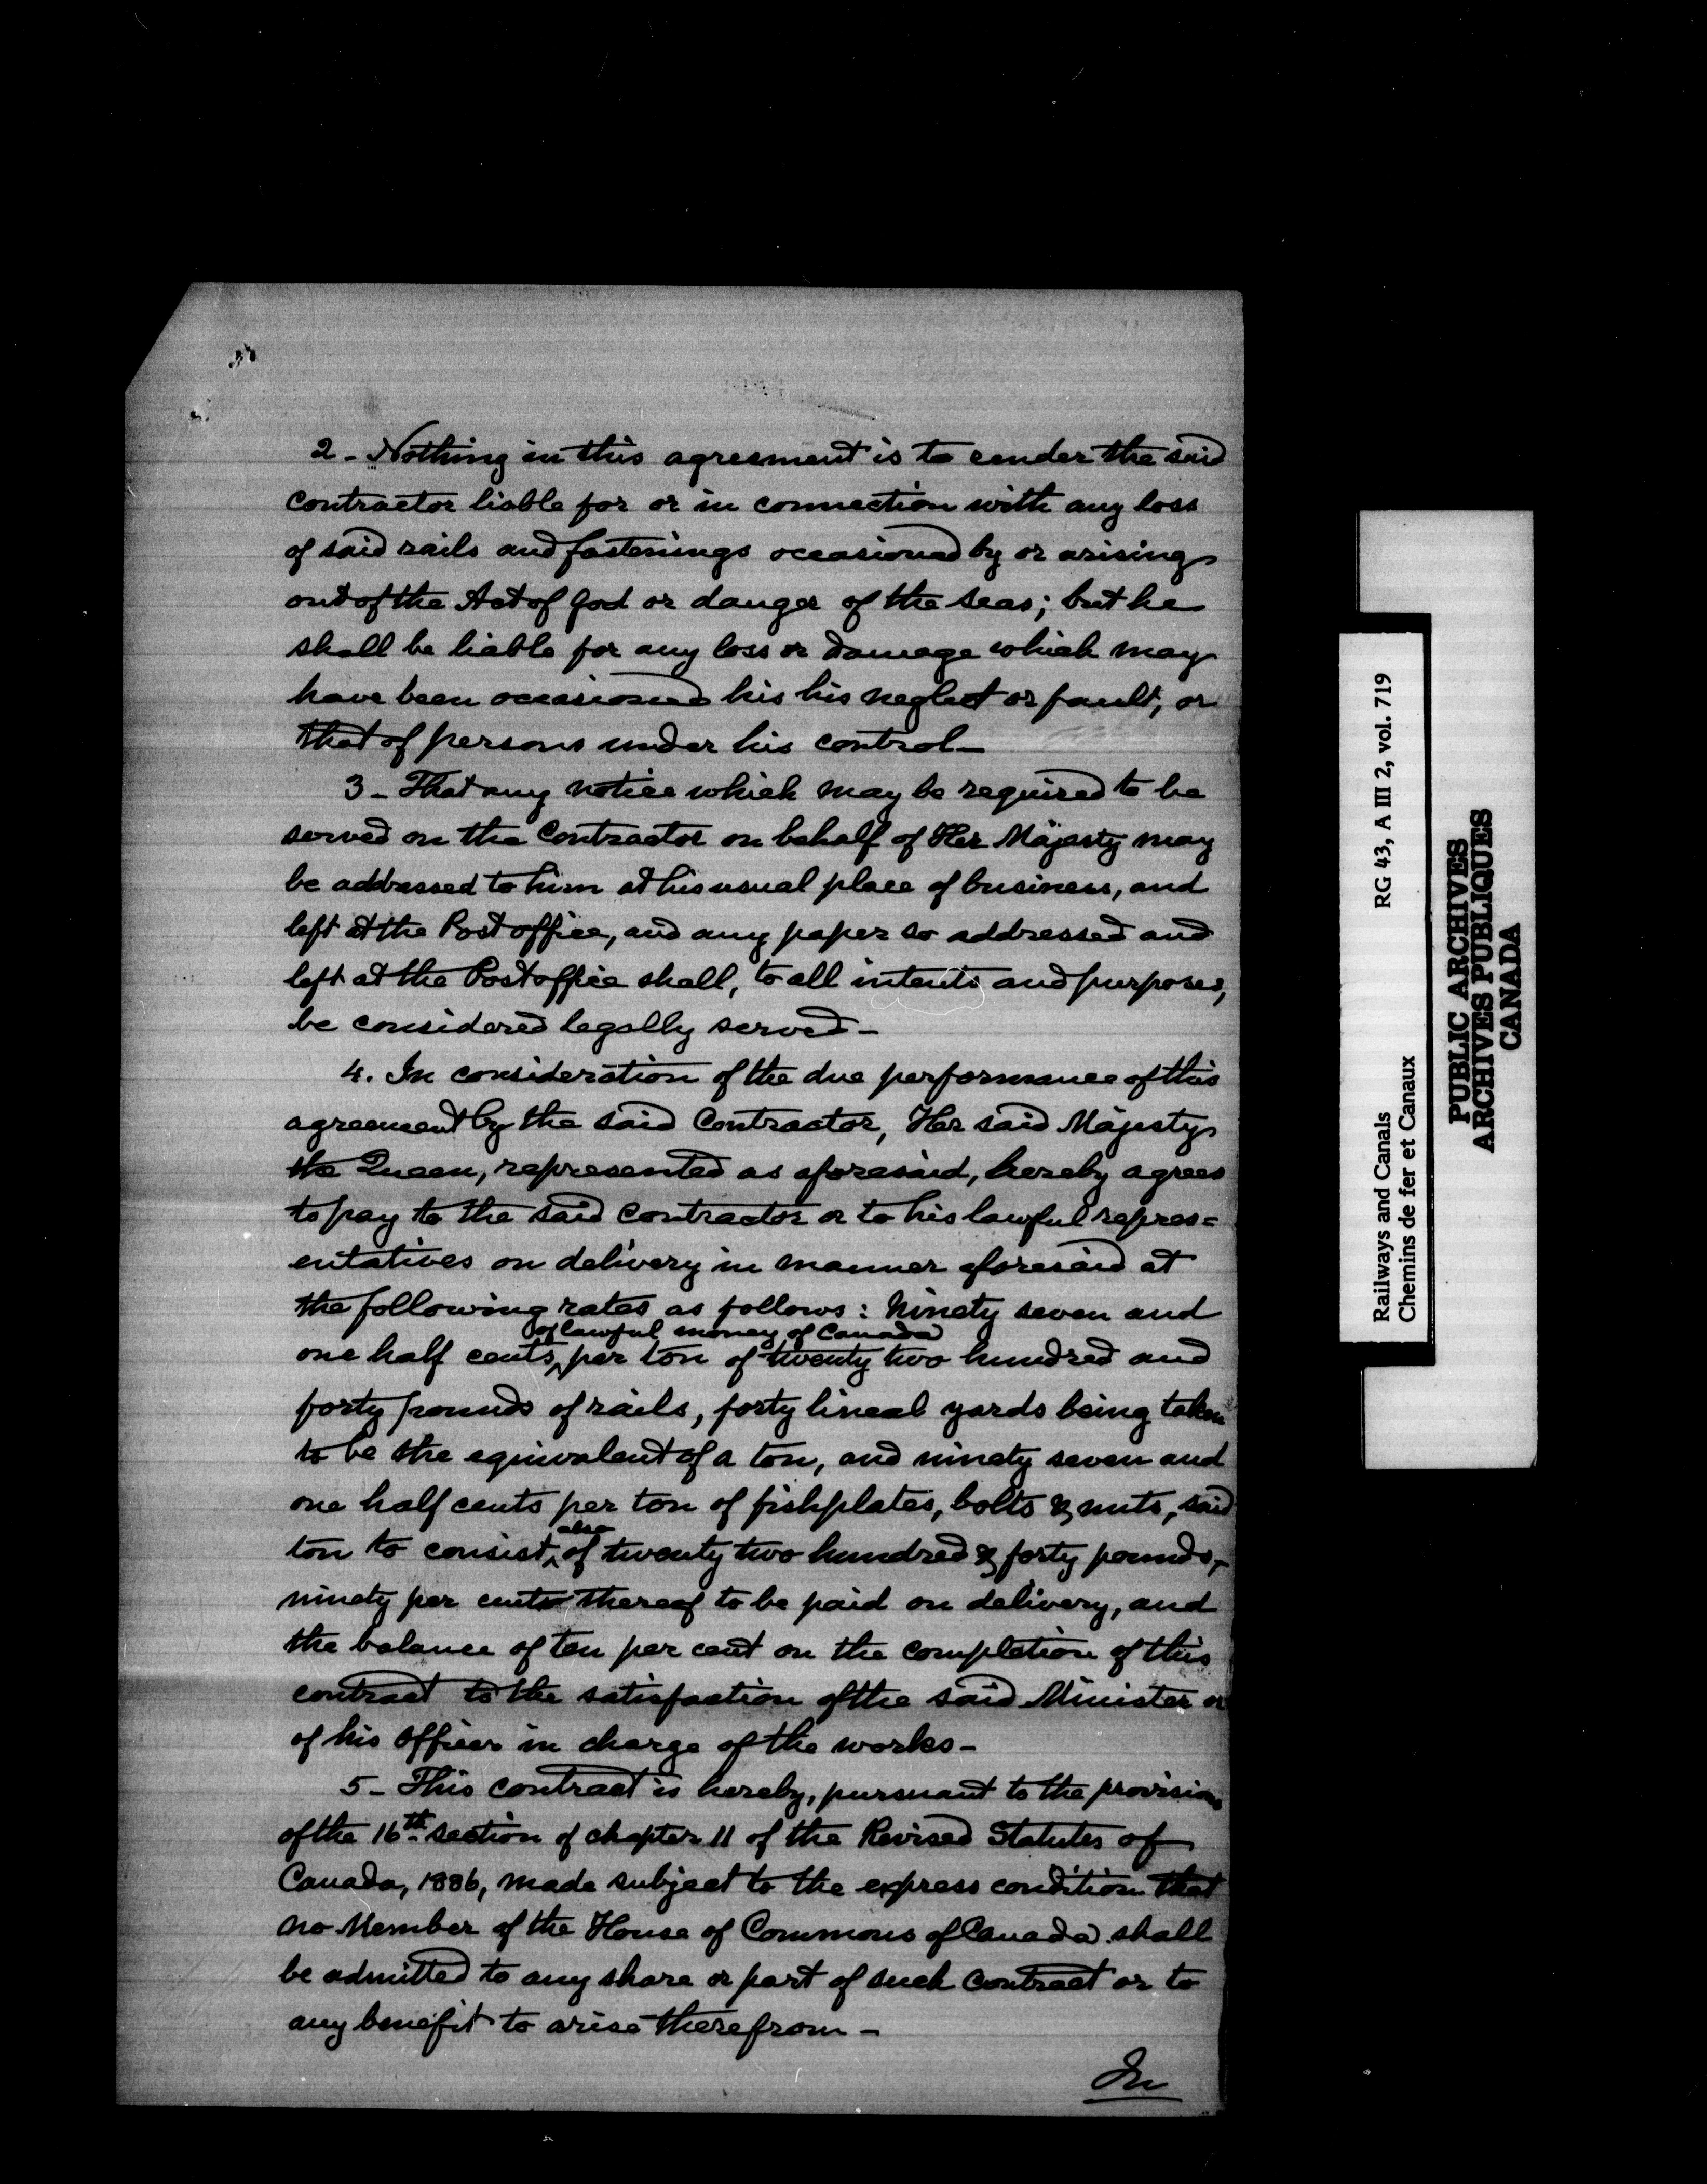 2 - Nothing in this agreement is to render the said
contractor liable for or in connection with any loss
of said rails and fastenings occasioned by or arising
out of the Act of God or danger of the seas; but he
shall be liable for any loss or damage which may
have been occasioned his his neglect or fault, or
that of persons under his control -
3 - That any notice which may be required to be
served on the Contractor on behalf of Her Majesty may
be addressed to him at his usual place of business, and
left at the Post office, and any paper so addressed and
left at the Post office shall, to all intents and purposes,
be considered legally served -
4. In consideration of the due performance of this
agreement by the said Contractor, Her said Majesty
the Queen, represented as aforesaid, hereby agrees
to pay to the said Contractor or to his lawful repres=
entatives on delivery in manner aforesaid at
the following rates as follows: Ninety seven and
of lawful money of Canada
one half cents ^ per ton of twenty two hundred and
forty pounds of rails, forty lineal yards being taken
to be the equivalent of a ton, and ninety seven and
one half cents per ton of fishplates, bolts & nuts, said
also
ton to consist ^ of twenty two hundred & forty pounds,
ninety per cent thereof to be paid on delivery, and
the balance of ten per cent on the completion of this
contract to the satisfaction of the said Minister or
of his Officer in charge of the works -
5 - This contract is hereby, pursuant to the provisions
of the 16th section of chapter 11 of the Revised Statutes of
Canada, 1886, made subject to the express condition that
no Member of the House of Commons of Canada shall
be admitted to any share or part of such contract or to
any benefit to arise therefrom -
In
Railways and Canals RG 43, A III 2, vol. 719
Chemins de fer et Canaux
PUBLIC ARCHIVES
ARCHIVES PUBLIQUES
CANADA